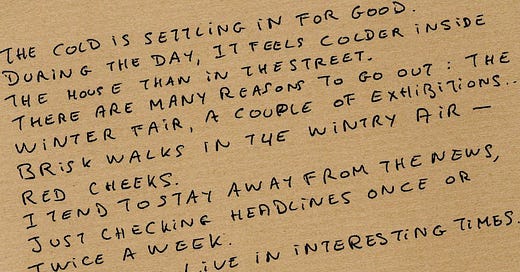 THE COLD IS SETTLING IN FOR GOOD.
DURING THE DAY, IT FEELS COLDER INSIDE
THE HOUSE THAN IN THE STREET.
THERE ARE MANY REASONS TO GO OUT : THE
WINTER FAIR, A COUPLE OF EXHIBITIONS..
BRISK WALKS IN THE WINTRY AIR —
RED CHEEKS.
I TEND TO STAY AWAY FROM THE NEWS,
JUST CHECKING HEADLINES ONCE OR
TWICE A WEEK.
LIVE IN INTERESTING TIMES.